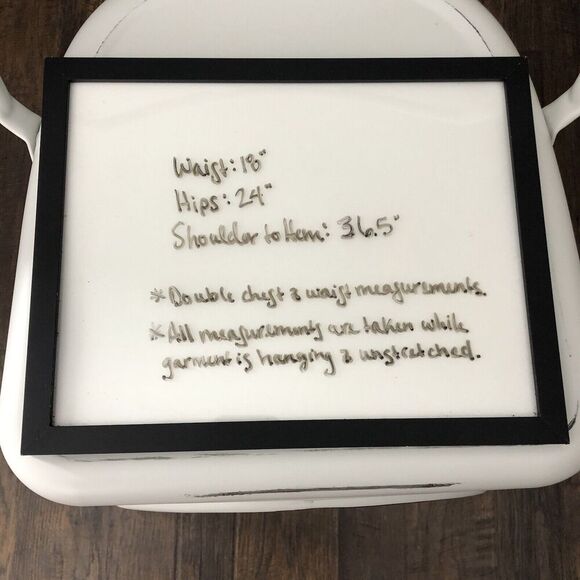 Waist: 18"
Hips: 24"
Shoulder to Hem: 36.5"
* Double chest & waist measurements.
* All measurements are taken while
garment is hanging & unstretched.